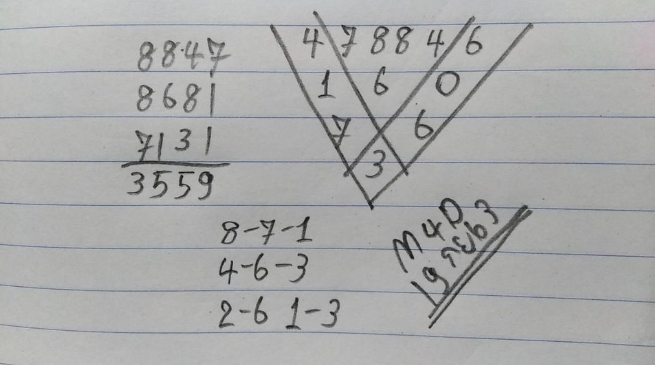 8847
8681
7131
3559
4 7 8 8 4 6
1 6 0
7 6
3
8-7-1
4-6-3
2-6 1-3
M4D
19 ก.ย 63